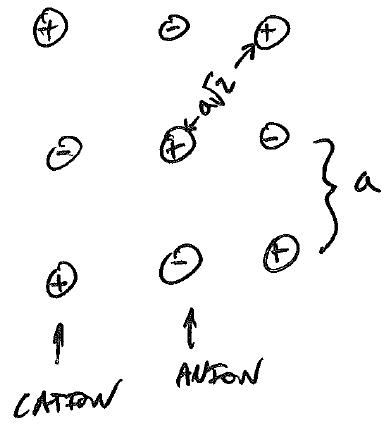 + - +
a√2
- + -
a
+ - +
CATION ANION